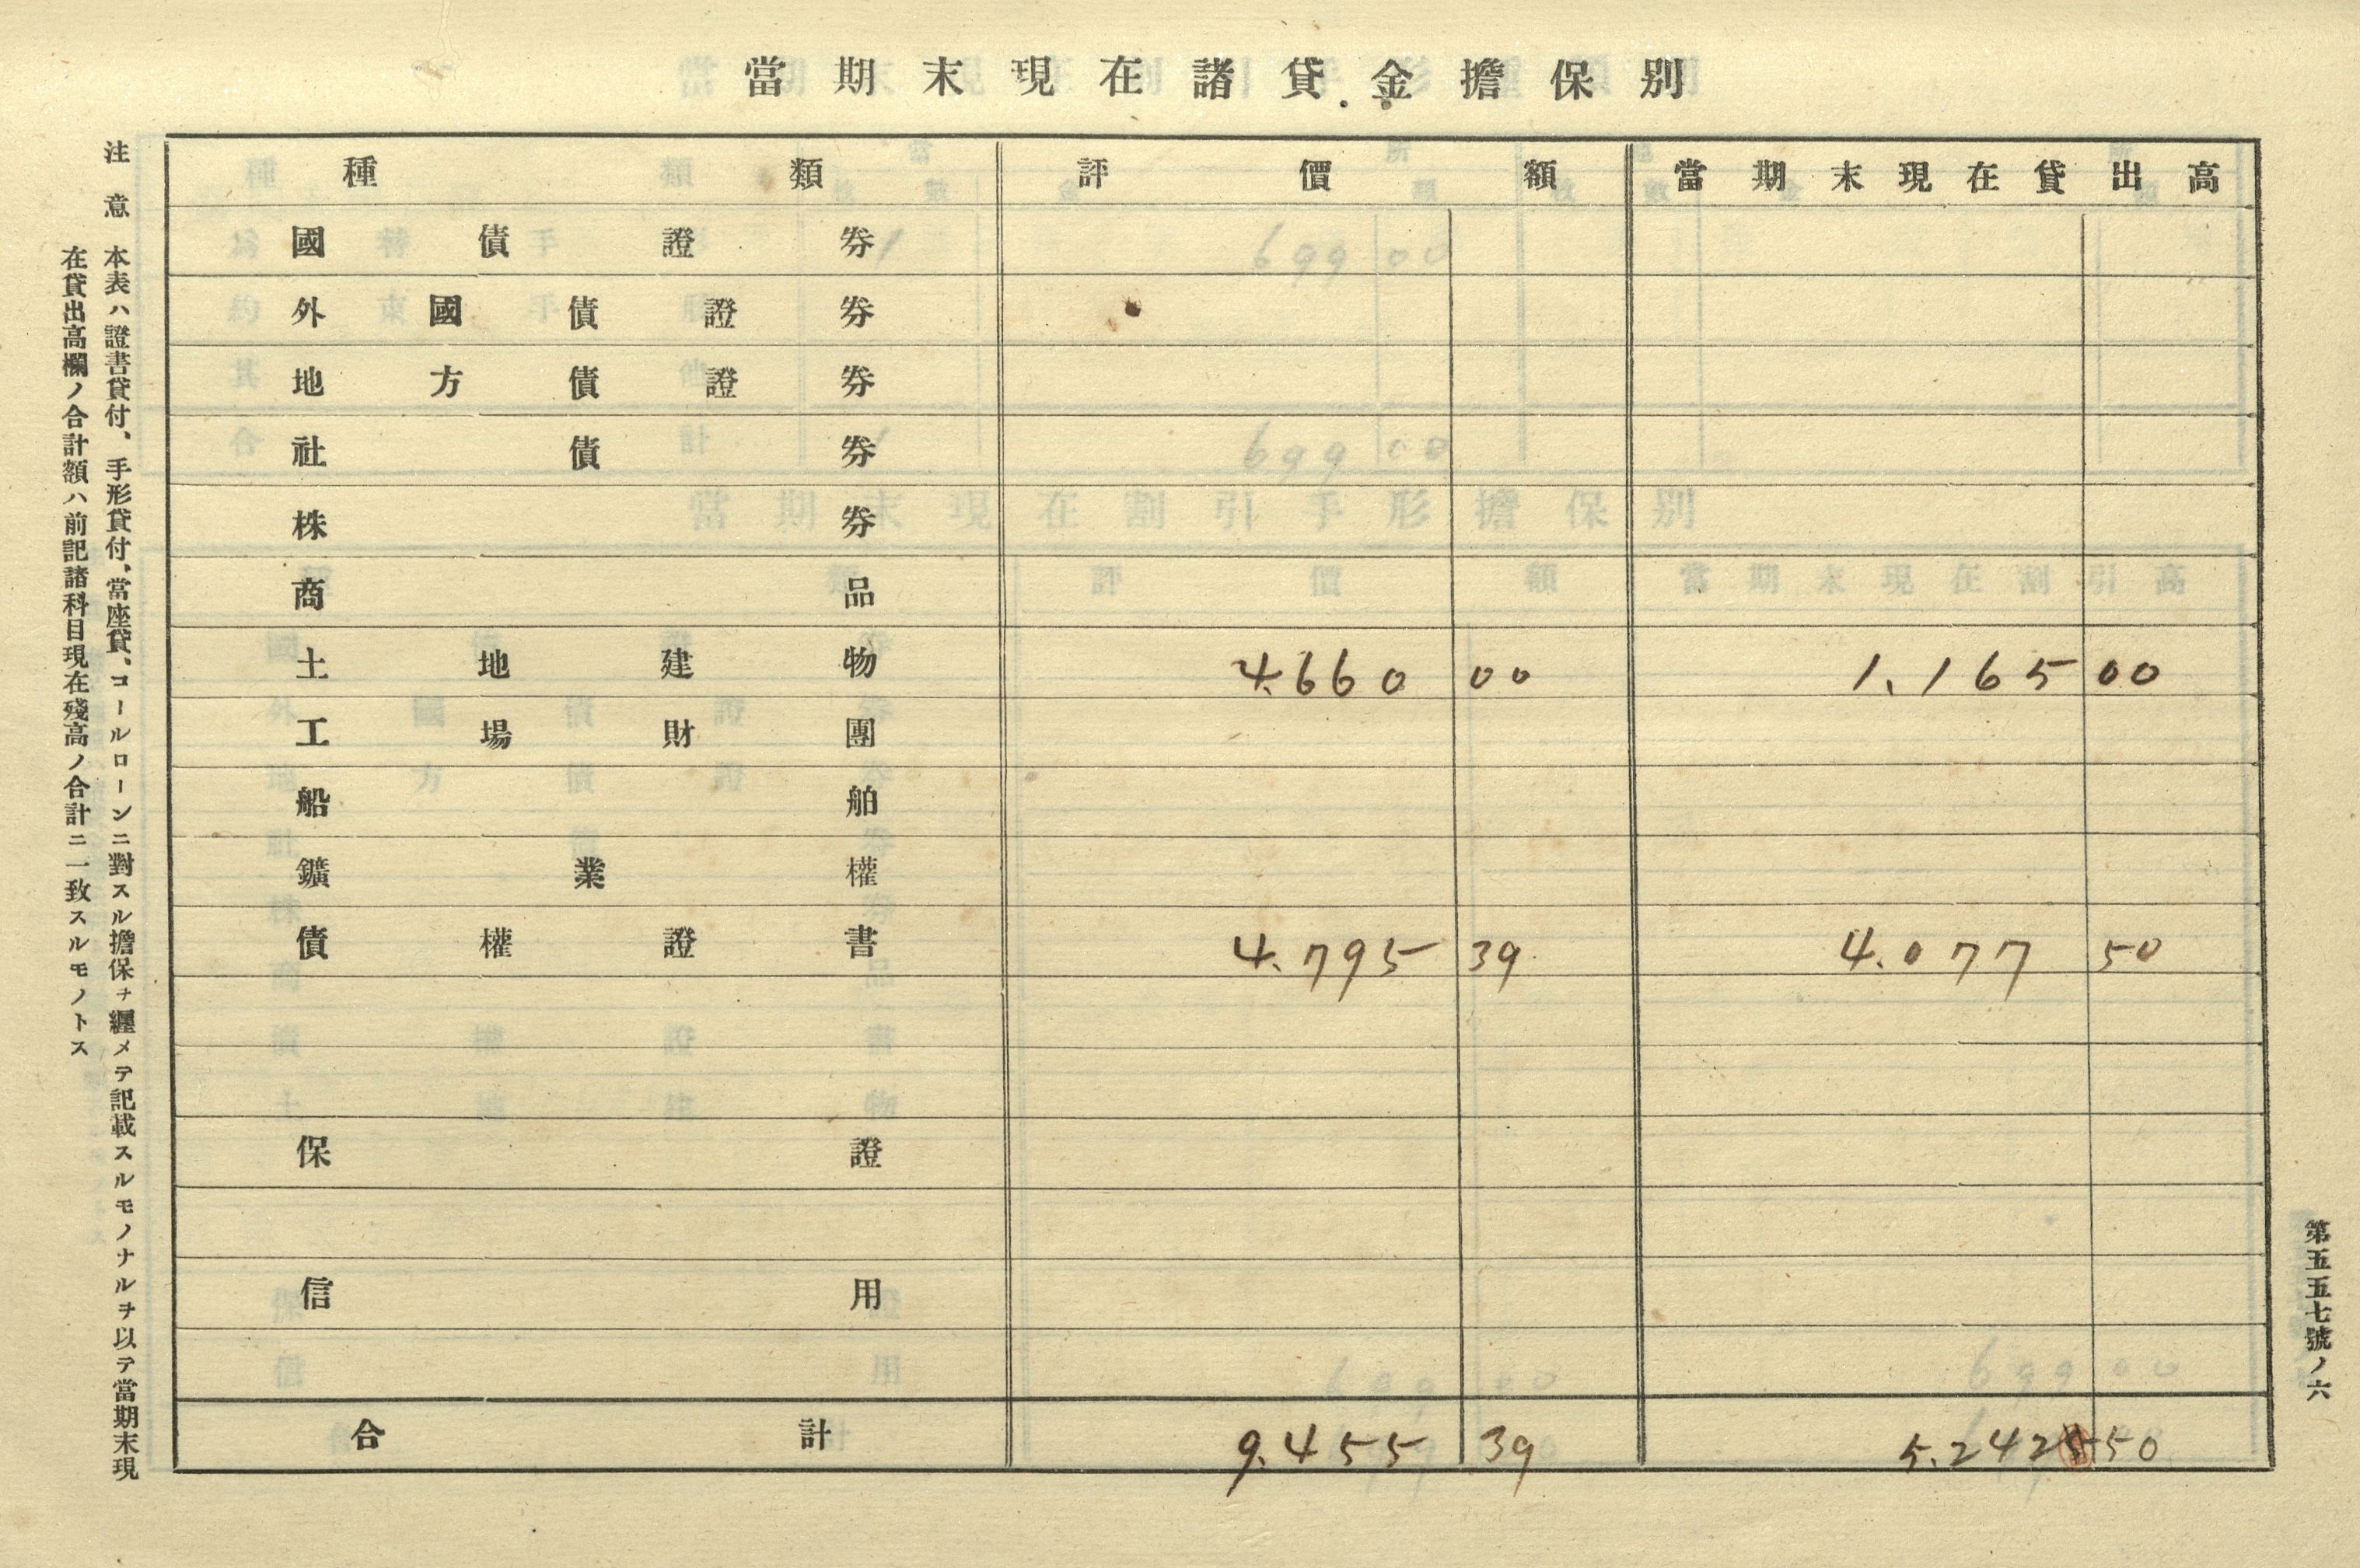 當期末現在諸貸金擔保別
種類 評價額 當期末現在貸出高
國債證券
外國債證券
地方債證券
社債券
株券
商品
土地建物 4.660 00 1.165 00
工場財團
船舶
鑛業權
債權證書 4.795 39 4.077 50
保證
信用
合計 9.455 39 5.242 50
注意 本表ハ證書貸付、手形貸付、當座貸、コールローンニ對スル擔保ヲ纒メテ記載スルモノナルヲ以テ當期末現
在貸出高欄ノ合計額ハ前記諸科目現在殘高ノ合計ニ一致スルモノトス
第五五七號ノ六